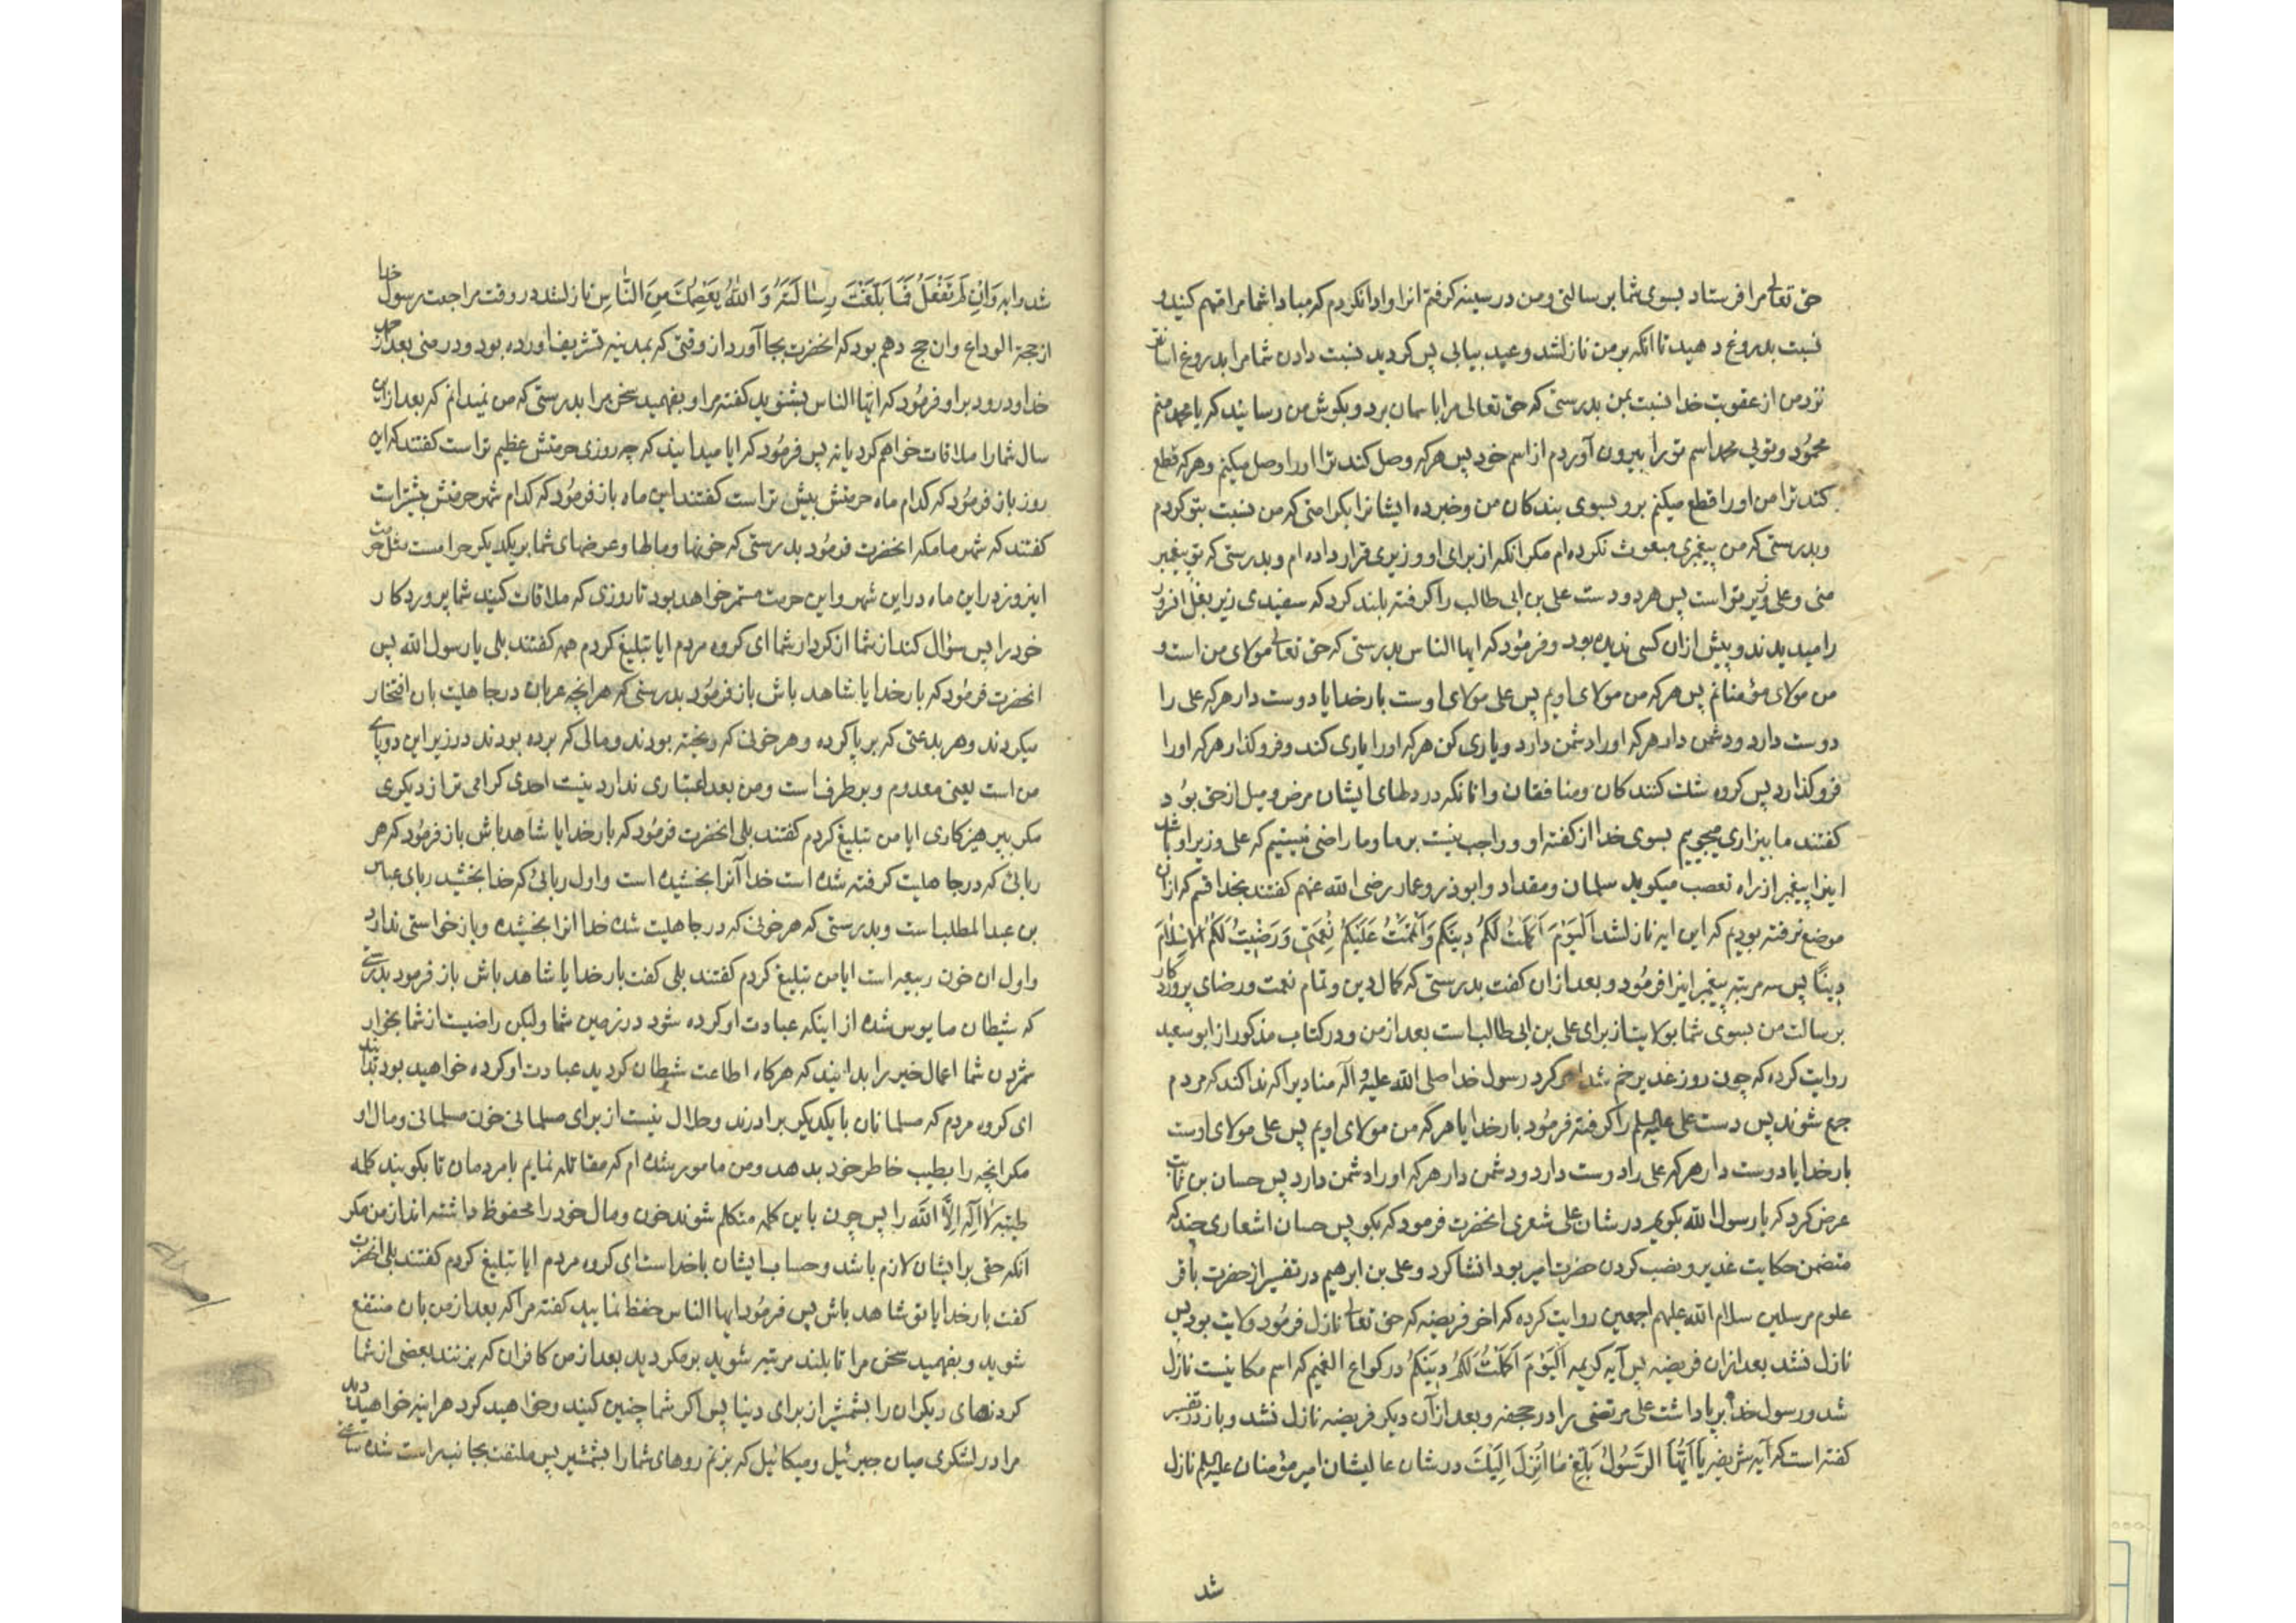 حق تعالی مرا فرستاد بسوی شما برسالتی و من در سینه کرفتم انرا و ادا نکردم که مبادا شما مرا متهم کنید و
نسبت بدروغ دهید تا انکه بر من نازلشد وعید بیابی پس کردید نسبت دادن شما مرا بدروغ اسانتر
نزد من از عقوبت خدا نسبت بمن بدرستی که حق تعالی مرا باسمان برد و بکوش من رسانید که یا محمد منم
محمُود و توئی محمد اسم تو را بیرون آوردم از اسم خود پس هرکه وصل کند ترا او را وصل میکنم و هرکه قطع
کند ترا من او را قطع میکنم برو بسوی بندکان من و خبر ده ایشانرا بکرامتی که من نسبت بتو کردم
و بدرستی که من پیغمبری مبعوث نکرده ام مکر انکه از برای او وزیری قرار داده ام و بدرستی که تو پیغمبر
منی و علی وزیر تو است پس هر دو دست علی بن ابی طالب را کرفته بلند کرد که سفیدی زیر بغل انزور
را میدیدند و پیش ازان کسی ندیده بود و فرمُود که ایها الناس بدرستی که حق تعالی مولای من است و
من مولای مؤمنانم پس هرکه من مولای اویم پس علی مولای اوست بار خدایا دوست دار هرکه علی را
دوست دارد و دشمن دار هرکه او را دشمن دارد و یاری کن هرکه او را یاری کند و فرو کذار هرکه او را
فرو کذارد پس کروه شک کنندکان و منافقان و انانکه در دلهای ایشان مرض و میل از حق بوُد
کفتند ما بیزاری میجوییم بسوی خدا از کفته او و واجب نیست بر ما و ما راضی نیستیم که علی وزیر او باشد
اینرا پیغمبر از راه تعصب میکوید سلمان و مقداد و ابوذر و عمار رضی الله عنهم کفتند بخدا قسم که ازان
موضع نرفته بودیم که این ایه نازلشد اَلْیَوْمَ اَکْمَلْتُ لَکُمْ دِینَکُمْ وَاَتْمَمْتُ عَلَیْکُمْ نِعْمَتِی وَرَضِیتُ لَکُمُ الاِسْلامَ
دِینًا پس سه مرتبه پیغمبر اینرا فرمُود و بعد ازان کفت بدرستی که کمال دین و تمام نعمت و رضای پروردکار
برسالت من بسوی شما بولایتست از برای علی بن ابی طالب است بعد از من و در کتاب مذکور از ابو سعید
روایت کرده که چون روز غدیر خم شد امر کرد رسول خدا صلی الله علیه و آله منادیرا که ندا کند که مردم
جمع شوند پس دست علی علیه السلم را کرفته فرمُود بار خدایا هرکه من مولای اویم پس علی مولای اوست
بار خدایا دوست دار هرکه علی را دوست دارد و دشمن دار هرکه او را دشمن دارد پس حسان بن ثابت
عرض کرد که یا رسول الله بکویم در شان علی شعری انحضرت فرمود که بکو پس حسان اشعاری چند که
متضمن حکایت غدیر و نصب کردن حضرت امیر بود انشا کرد و علی بن ابرهیم در تفسیر از حضرت باقر
علوم مرسلین سلام الله علیهم اجمعین روایت کرده که اخر فریضه که حق تعالی نازل فرمُود ولایت بود پس
نازل نشد بعد ازان فریضه پس آیه کریمه اَلْیَوْمَ اَکْمَلْتُ لَکُمْ دِینَکُمْ در کراع الغمیم که اسم مکانیست نازل
شد و رسول خدا بر پا داشت علی مرتضی را در جحفه و بعد از آن دیکر فریضه نازل نشد و باز در تفسیر
کفته است که آیه شریفه یَا اَیُّهَا الرَّسُولُ بَلِّغْ مَا اُنْزِلَ اِلَیْکَ در شان عالیشان امیر مؤمنان علیه السلم نازل
شد
شد و ایه وَاِنْ لَمْ تَفْعَلْ فَمَا بَلَّغْتَ رِسَالَتَهُ وَ اللهُ یَعْصِمُکَ مِنَ النَّاسِ نازلشد در وقت مراجعت رسول خدا
از حجة الوداع و ان حج دهم بود که انحضرت بجا آورد از وقتی که بمدینه تشریف اورده بود و در منی بعد از حمد
خدا و درود بر او فرمُود که ایها الناس بشنوید کفته مرا و بفهمید سخن مرا بدرستی که من نمیدانم که بعد از این
سال شما را ملاقات خواهم کرد یا نه پس فرمُود که ایا میدانید که چه روزی حرمتش عظیم تر است کفتند که این
روز باز فرمُود که کدام ماه حرمتش بیش تر است کفتند این ماه باز فرمُود که کدام شهر حرمتش بیشتر است
کفتند که شهر ما مکه انحضرت فرمُود بدرستی که خونها و مالها و عرضهای شما بر یکدیکر حرامست مثل حرمت
اینروز در این ماه در این شهر و این حرمت مستمر خواهد بود تا روزی که ملاقات کنید شما پروردکار
خود را پس سؤال کند از شما از کردار شما ای کروه مردم ایا تبلیغ کردم همه کفتند بلی یا رسول الله پس
انحضرت فرمُود که بار خدایا شاهد باش باز فرمُود بدرستی که هر انچه عربان در جاهلیت بان افتخار
میکردند و هر بدعتی که بر پا کرده و هر خونی که ریخته بودند و مالی که برده بودند در زیر این دو پای
من است یعنی معدوم و بر طرف است و من بعد اعتباری ندارد نیست احدی کرامی تر از دیکری
مکر بپرهیزکاری ایا من تبلیغ کردم کفتند بلی انحضرت فرمُود که بار خدایا شاهد باش باز فرمُود که هر
ربائی که در جاهلیت کرفته شده است خدا آنرا بخشیده است و اول ربائی که خدا بخشید ربای عباس
بن عبد المطلب است و بدرستی که هر خونی که در جاهلیت شده خدا انرا بخشیده و باز خواستی ندارد
و اول ان خون ربیعه است ایا من تبلیغ کردم کفتند بلی کفت بار خدایا شاهد باش باز فرمود بدرستی
که شیطان مایوس شده از اینکه عبادت او کرده شود در زمین شما ولیکن راضیست از شما بخوار
شمردن شما اعمال خیر را بدانید که هرکاه اطاعت شیطان کردید عبادت او کرده خواهید بود بدانید
ای کروه مردم که مسلمانان با یکدیکر برادرند و حلال نیست از برای مسلمانی خون مسلمانی و مال او
مکر انچه را بطیب خاطر خود بدهد و من مامور شده ام که مقاتله نمایم با مردمان تا بکویند کلمه
طیبه لَا اِلَهَ اِلَّا الله را پس چون باین کلمه متکلم شوند خون و مال خود را محفوظ داشته اند از من مکر
انکه حقی بر ایشان لازم باشد و حساب ایشان با خداست ای کروه مردم ایا تبلیغ کردم کفتند بلی انحضرت
کفت بار خدایا تو شاهد باش پس فرمُود ایها الناس حفظ نمایید کفته مرا که بعد از من بان منتفع
شوید و بفهمید سخن مرا تا بلند مرتبه شوید بر مکردید بعد از من کافران که بزنند بعضی از شما
کردنهای دیکران را بشمشیر از برای دنیا پس اکر شما چنین کنید و خواهید کرد هراینه خواهید دید
مرا در لشکری میان جبرئیل و میکائیل که بزنم روهای شما را بشمشیر پس ملتفت بجانب راست شده ساعتی